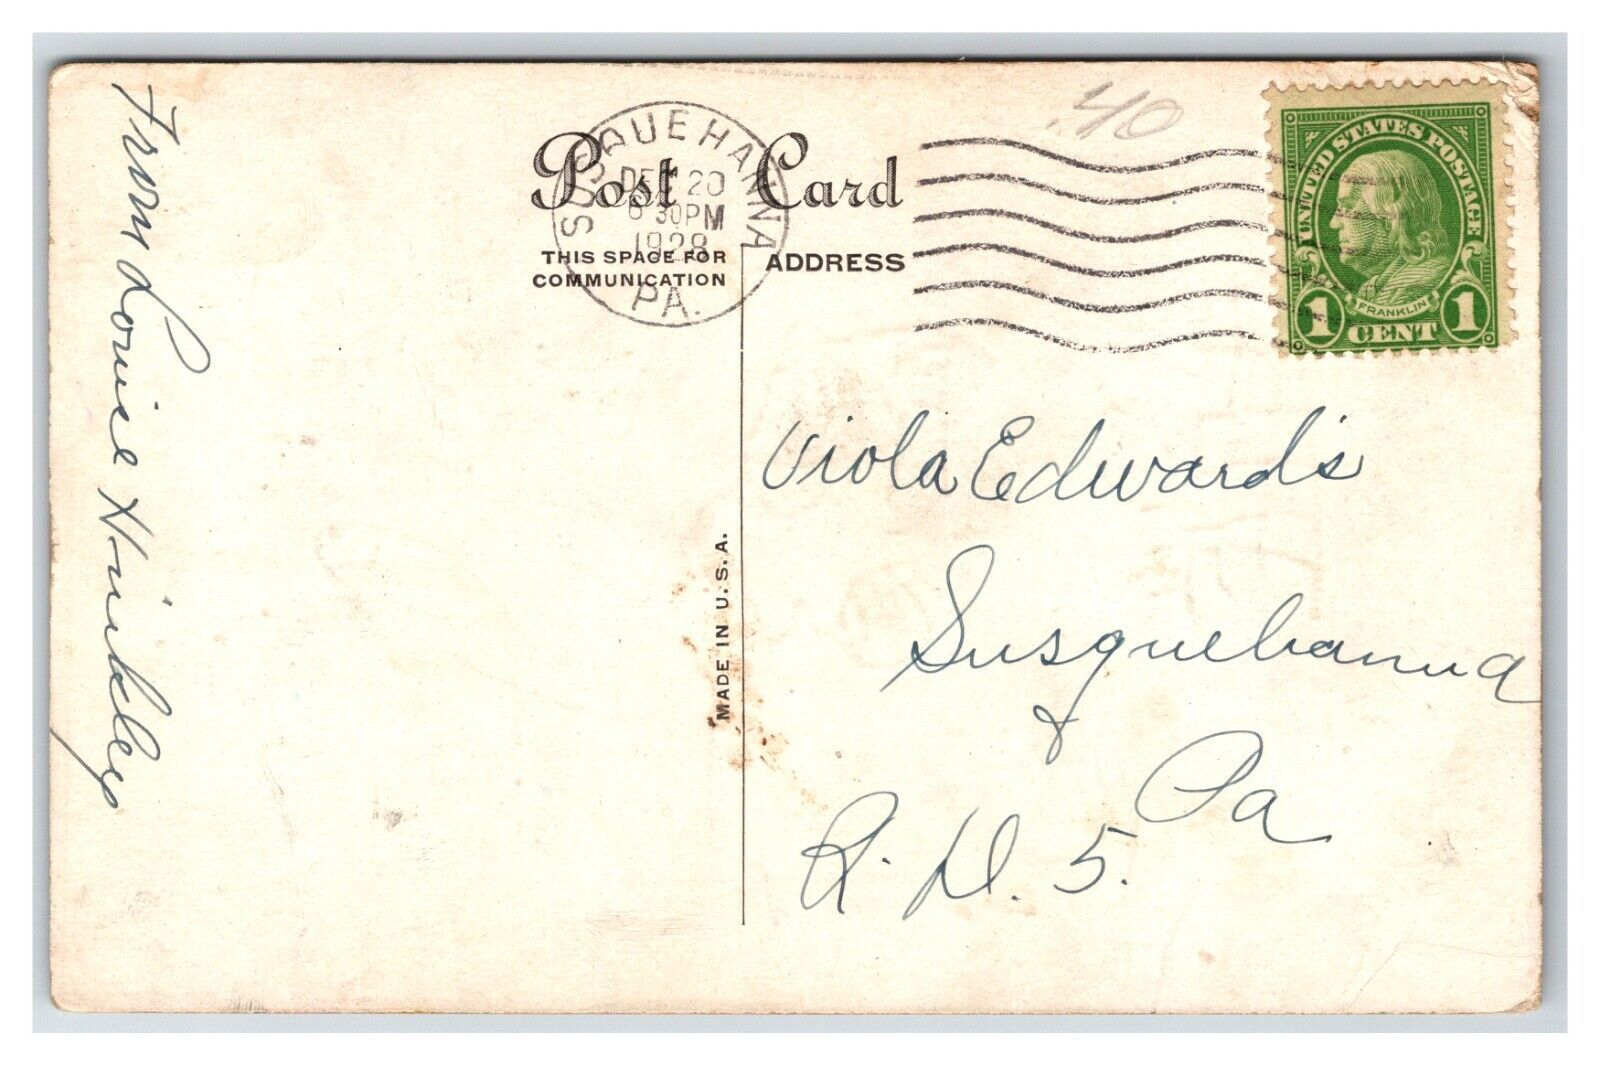 From Louise Hinkley
.40
SUSQUEHANNA
PA.
DEC 20
6 30PM
1928
Post Card
THIS SPACE FOR
COMMUNICATION
ADDRESS
UNITED STATES POSTAGE
FRANKLIN
1 CENT 1
Viola Edward's
Susquehanna
Pa
R. D. 5.
MADE IN U. S. A.